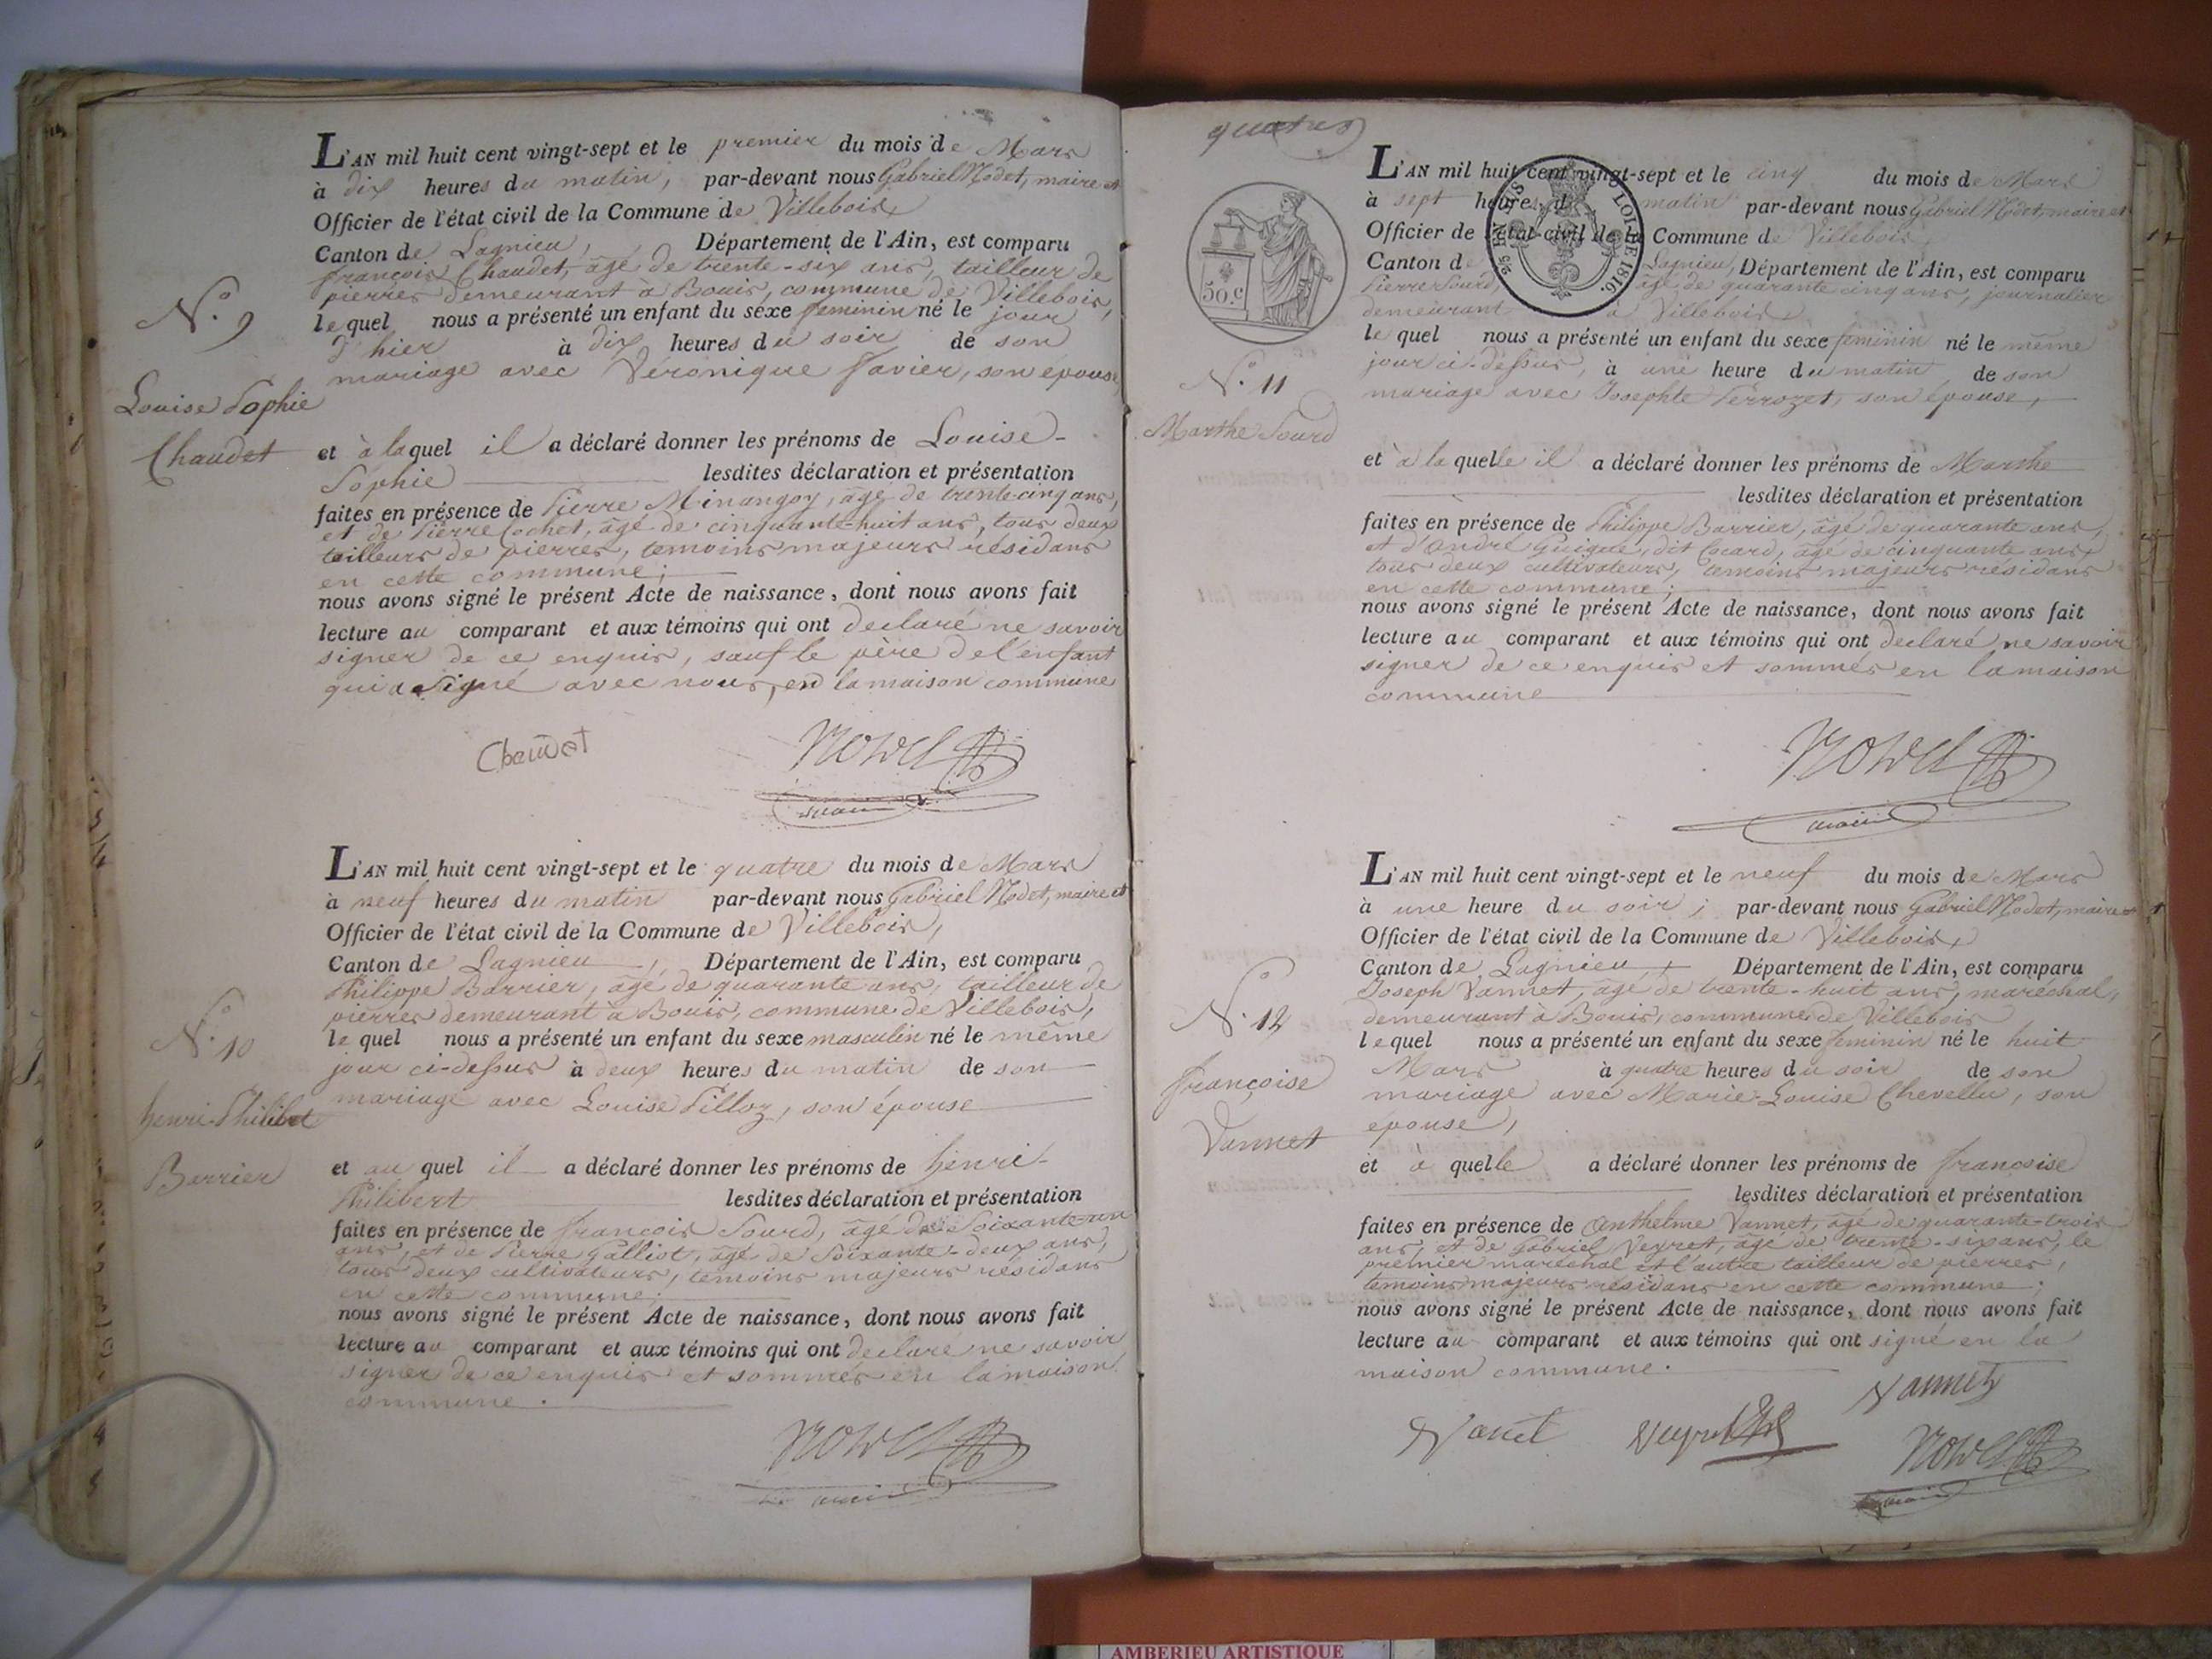 L'AN mil huit cent vingt-sept et le premier du mois de Mars
à dix heures du matin, par-devant nous Gabriel Nodet, maire et
Officier de l'état civil de la Commune de Villebois,
Canton de Lagnieu, Département de l'Ain, est comparu
françois Chaudet, âgé de trente-six ans, tailleur de
pierres demeurant à Bouis, commune de Villebois,
lequel nous a présenté un enfant du sexe feminin né le jour
d'hier à dix heures du soir de son
mariage avec Véronique Favier, son épouse,
N.° 9
Louise Sophie
Chaudet
et à laquel il a déclaré donner les prénoms de Louise-
Sophie lesdites déclaration et présentation
faites en présence de Pierre Minangoy, âgé de trente-cinq ans,
et de Pierre Cochet, âgé de cinquante-huit ans, tous deux
tailleurs de pierres, temoins majeurs résidans
en cette commune;
nous avons signé le présent Acte de naissance, dont nous avons fait
lecture au comparant et aux témoins qui ont declaré ne savoir
signer de ce enquis, sauf le père de l'enfant
qui a signé avec nous, en la maison commune
Chaudet
Nodet
maire
L'AN mil huit cent vingt-sept et le quatre du mois de Mars
à neuf heures du matin par-devant nous Gabriel Nodet, maire et
Officier de l'état civil de la Commune de Villebois,
Canton de Lagnieu, Département de l'Ain, est comparu
Philippe Barrier, âgé de quarante ans, tailleur de
pierres demeurant à Bouis, commune de Villebois,
lequel nous a présenté un enfant du sexe masculin né le même
jour ci-dessus à deux heures du matin de son
mariage avec Louise Pilloz, son épouse
N.° 10
henri-Philibert
Barrier
et au quel il a déclaré donner les prénoms de henri-
Philibert lesdites déclaration et présentation
faites en présence de françois Sourd, âgé de soixante-un
ans, et de Pierre Galliot, âgé de soixante-deux ans,
tous deux cultivateurs, témoins majeurs résidans
en cette commune;
nous avons signé le présent Acte de naissance, dont nous avons fait
lecture au comparant et aux témoins qui ont declaré ne savoir
signer de ce enquis et sommés en la maison
commune.
Nodet
maire
quatre
50.c
LOI DE 1816
L'AN mil huit cent vingt-sept et le cinq du mois de Mars
à sept heures du matin par-devant nous Gabriel Nodet, maire et
Officier de l'état civil de la Commune de Villebois,
Canton de Lagnieu, Département de l'Ain, est comparu
Pierre Sourd, âgé de quarante cinq ans, journalier
demeurant à Villebois,
lequel nous a présenté un enfant du sexe feminin né le même
jour ci-dessus, à une heure du matin de son
mariage avec Josephte Perrozet, son épouse,
N.° 11
Marthe Sourd
et à la quelle il a déclaré donner les prénoms de Marthe
lesdites déclaration et présentation
faites en présence de Philippe Barrier, âgé de quarante ans,
et d'André Guigue, dit Cocard, âgé de cinquante ans,
tous deux cultivateurs, temoins majeurs résidans
en cette commune;
nous avons signé le présent Acte de naissance, dont nous avons fait
lecture au comparant et aux témoins qui ont declaré ne savoir
signer de ce enquis et sommés en la maison
commune
Nodet
maire
L'AN mil huit cent vingt-sept et le neuf du mois de Mars
à une heure du soir; par-devant nous Gabriel Nodet, maire et
Officier de l'état civil de la Commune de Villebois,
Canton de Lagnieu, Département de l'Ain, est comparu
Joseph Vannet, âgé de trente-huit ans, maréchal,
demeurant à Bouis, commune de Villebois
lequel nous a présenté un enfant du sexe feminin né le huit
Mars à quatre heures du soir de son
mariage avec Marie-Louise Chevellu, son
épouse,
N.° 12
françoise
Vannet
et à quelle a déclaré donner les prénoms de françoise
lesdites déclaration et présentation
faites en présence de Anthelme Vannet, âgé de quarante-trois
ans, et de Gabriel Veyret, âgé de trente-six ans, le
premier maréchal et l'autre tailleur de pierres,
temoins majeurs résidans en cette commune;
nous avons signé le présent Acte de naissance, dont nous avons fait
lecture au comparant et aux témoins qui ont signé en la
maison commune.
Vannet
Vanet
Veyret
Nodet
maire
AMBERIEU ARTISTIQUE